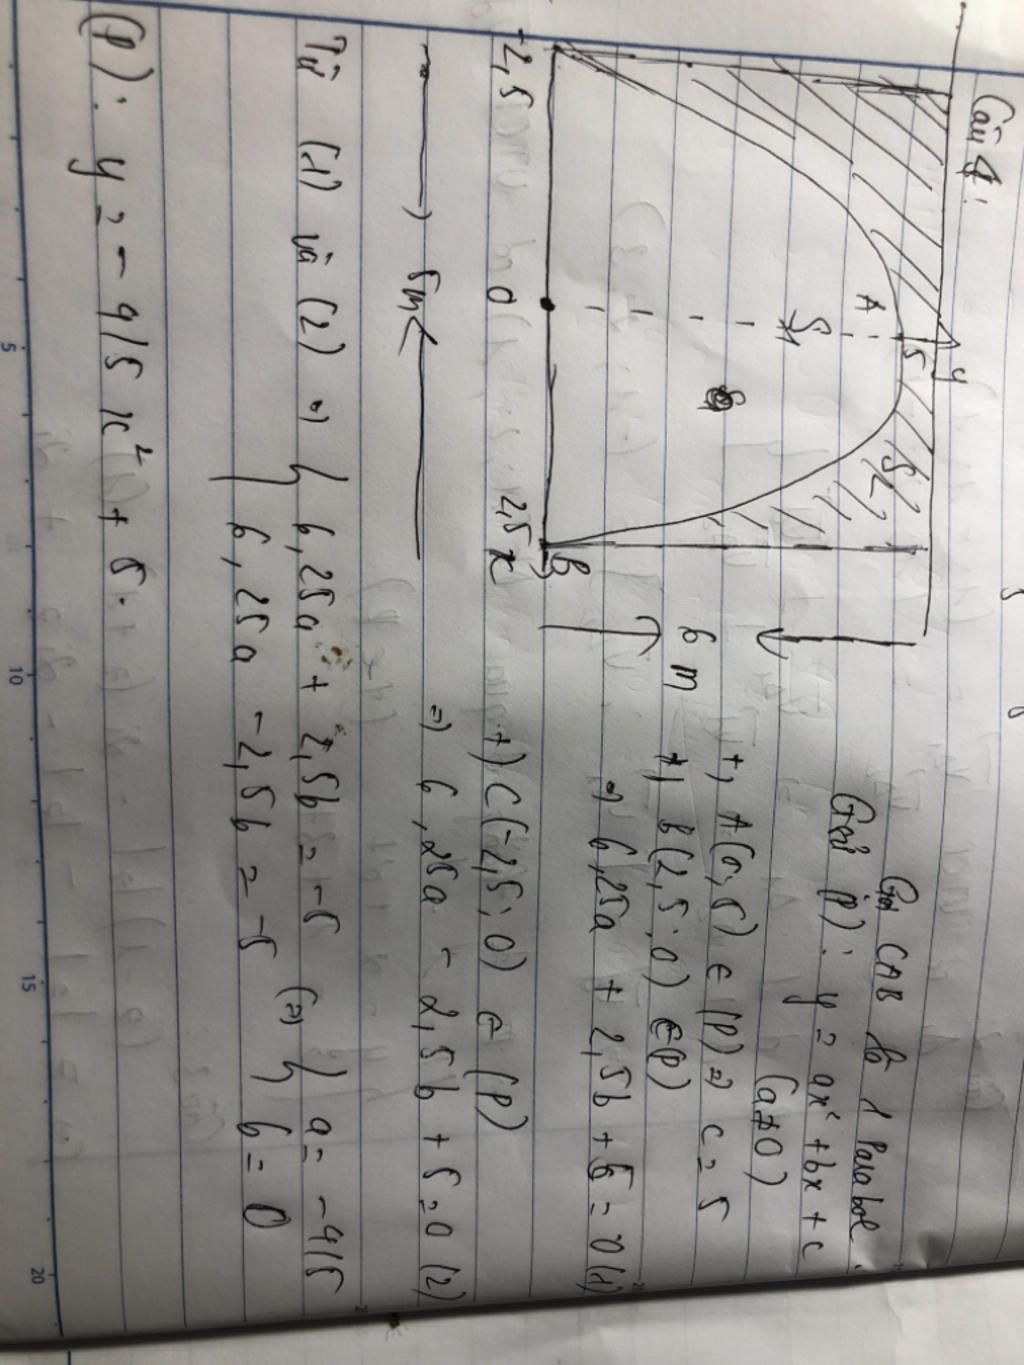 Câu 4:
y
5
A
S1
S2
-2,5
0
2,5
x
B
6 m
5m
Gọi CAB là 1 Parabol.
(P): y = ax² + bx + c
(a≠0)
+, A(0; 5) ∈ (P) => c = 5
+, B(2,5; 0) ∈ (P)
=> 6,25a + 2,5b + 5 = 0 (1)
+) C(-2,5; 0) ∈ (P)
=> 6,25a - 2,5b + 5 = 0 (2)
Từ (1) và (2) => { 6,25a + 2,5b = -5 (=) { a = -4/5
6,25a - 2,5b = -5 b = 0
(P): y = - 4/5 x² + 5.
5
10
15
20